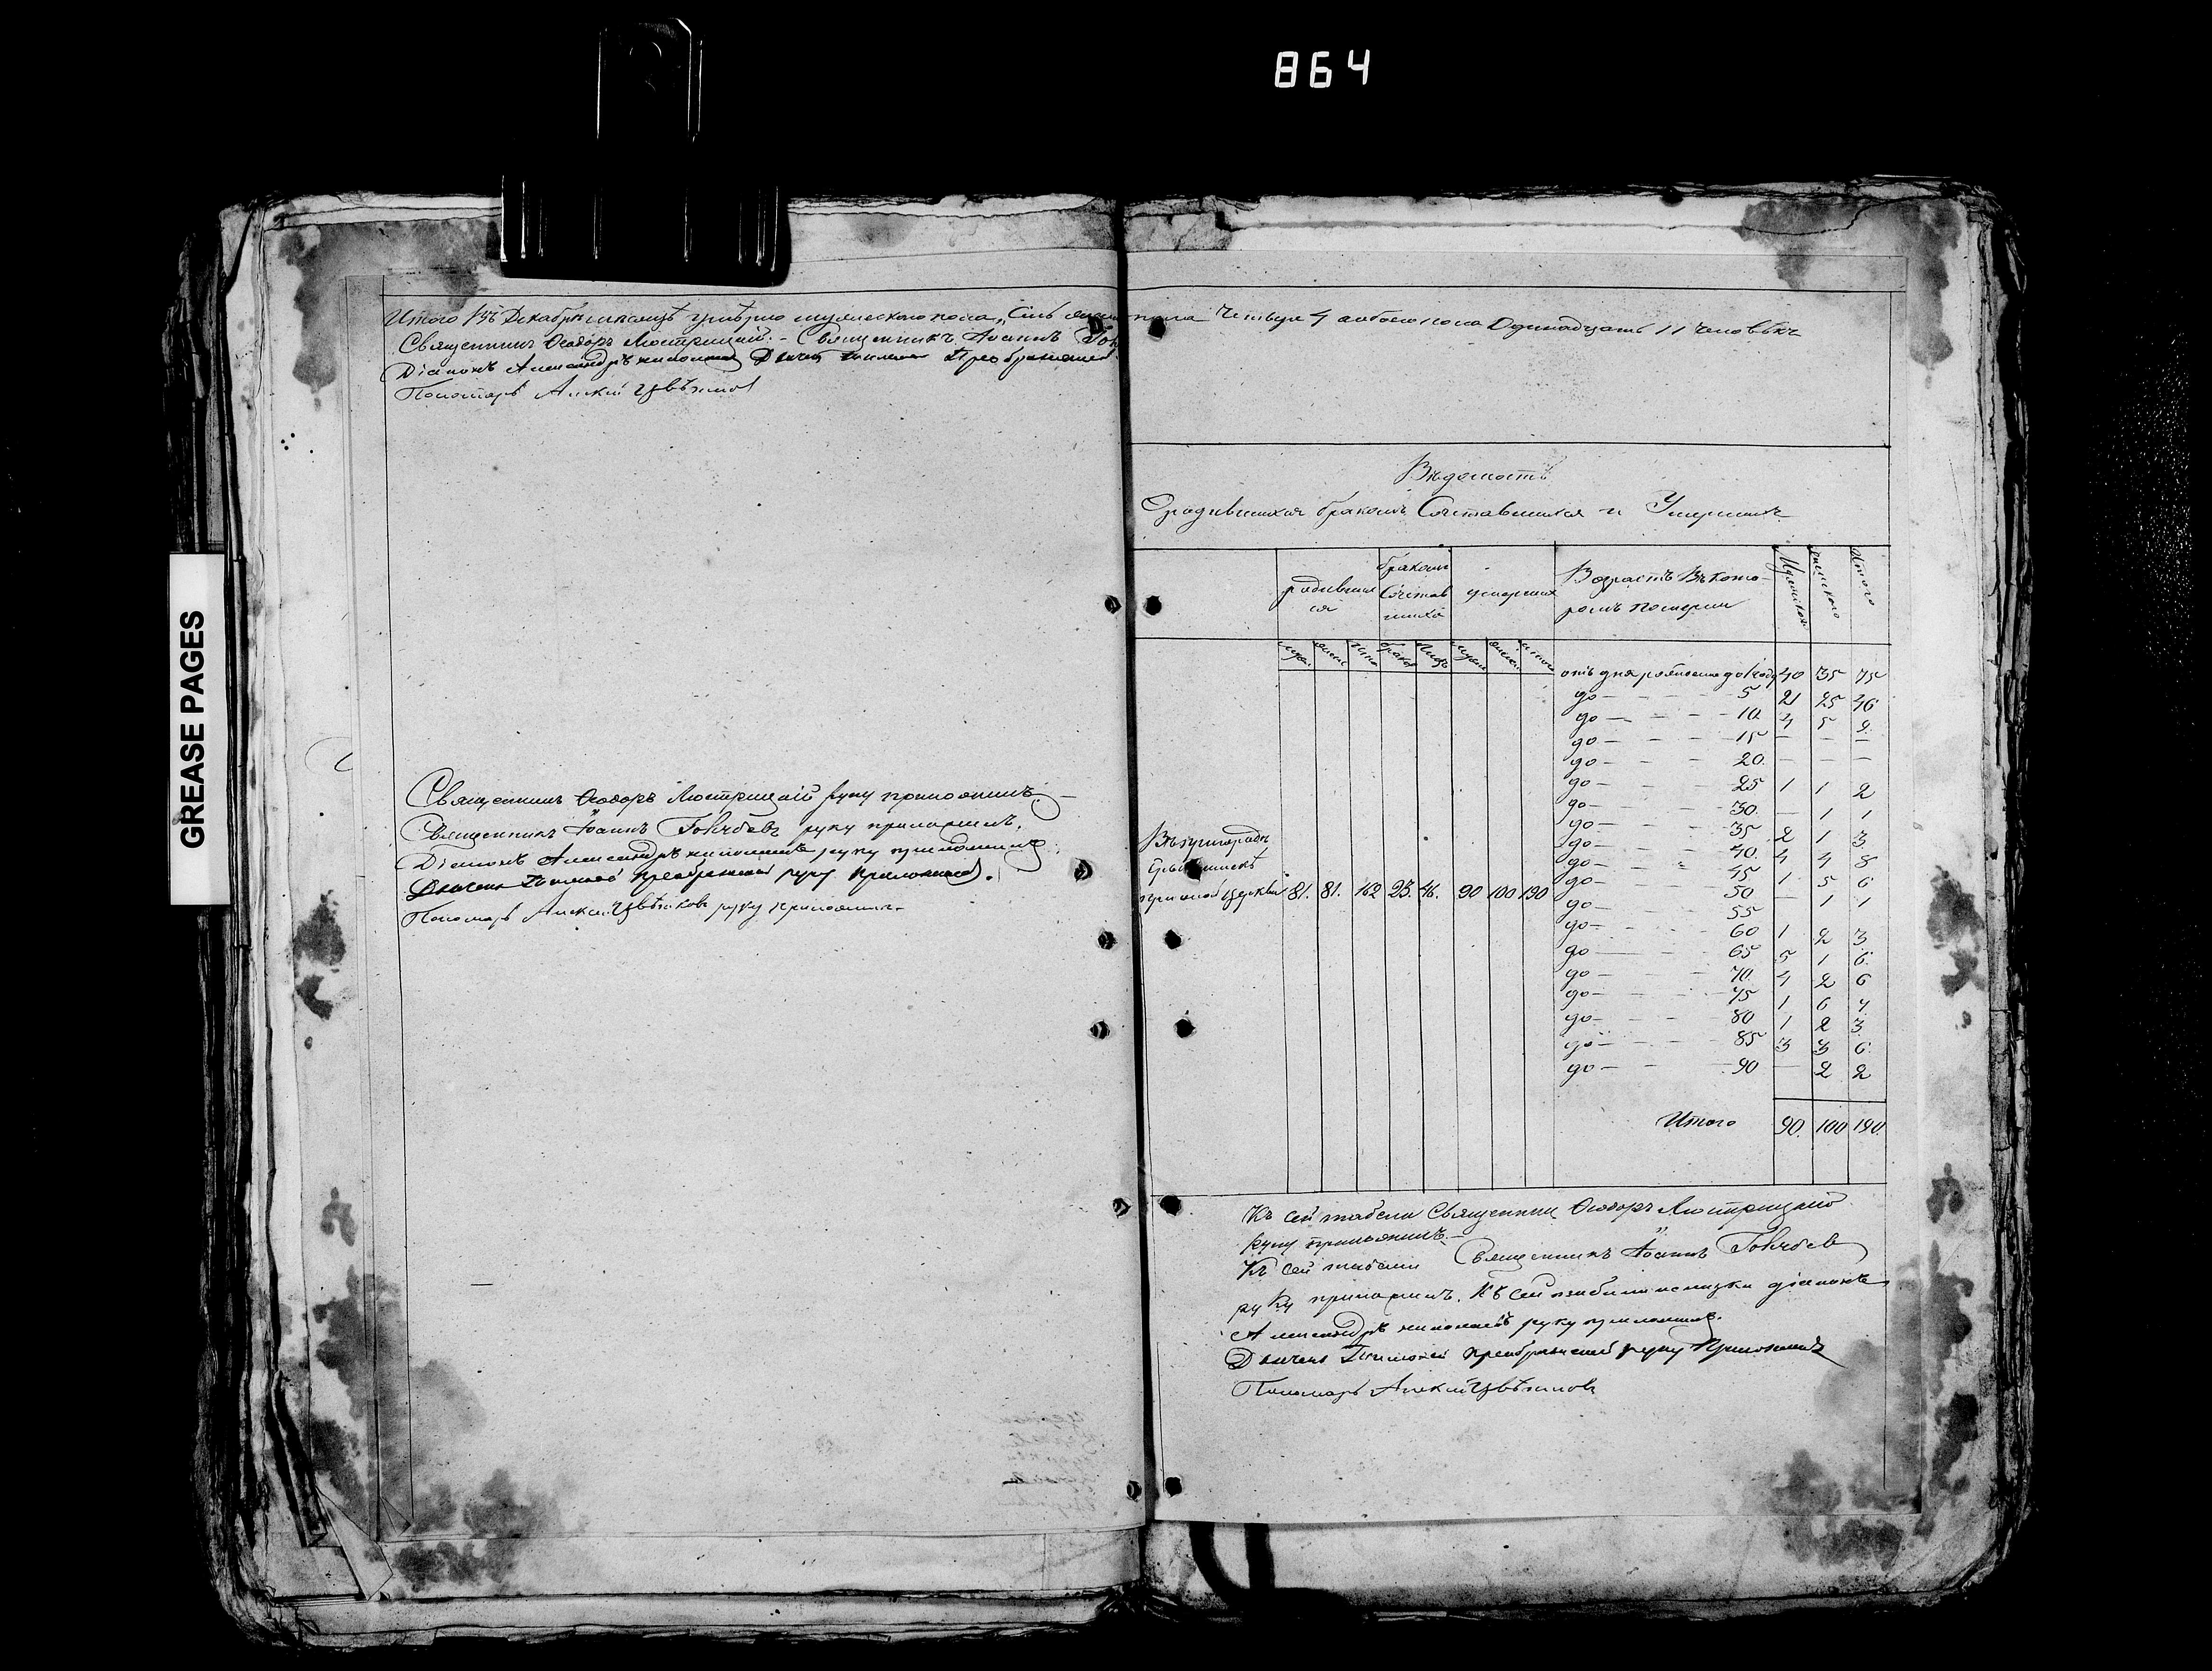 864
GREASE PAGES
Итого въ Декабрѣ мѣсяцѣ умерло мужескаго пола
Четыре 4 а обоего пола Одинадцать 11 человѣкъ
Священникъ Ѳеодоръ Люстрицкій. - Священникъ Іоаннъ
Діаконъ Александръ Дьячекъ Преображенскій
Пономарь Алексѣй Цвѣтковъ
Священникъ Ѳеодоръ Люстрицкій руку приложилъ. -
Священникъ Іоаннъ руку приложилъ.
Діаконъ Александръ руку приложилъ
Дьячекъ Преображенскій руку приложилъ.
Пономарь Алексѣй Цвѣтковъ руку приложилъ.
Вѣдомость
О родившихся бракомъ Сочетавшихся и Умершихъ
родивших ся
бракомъ Сочетав шихся
умершихъ
Возрастъ Въ кото-
ромъ померли
Мужеска
женскаго
Итого
муж. женс. Итого браков муж. женск. итого
отъ дня рожденія до 1 года 40 35 75
до — — — 5 21 25 46
до — — — 10. 4 5 9.
до — — — 15 — — —
до — — — 20. — — —
до — — — 25 1 1 2
до — — — 30. — 1 1
до — — — 35 2 1 3
до — — — 40. 4 4 8
до — — — 45 1 5 6
до — — — 50 — 1 1
до — — — 55
до — — — 60 1 2 3
до — — — 65 5 1 6.
до — — — 70. 4 2 6
до — — — 75 1 6 7
до — — — 80 1 2 3
до — — — 85 3 3 6.
до — — — 90 — 2 2
церкви 81. 81. 162 23. 46. 90 100 190
Итого 90. 100 190.
Къ сей табели Священникъ Ѳеодоръ Люстрицкій
руку приложилъ. -
Къ сей табели Священникъ Іоаннъ
руку приложилъ. Къ сей табели діаконъ
Александръ руку приложилъ.
Дьячекъ Преображенскій руку Приложилъ
Пономарь Алексѣй Цвѣтковъ